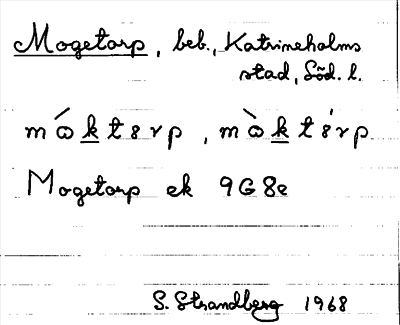 Mogetorp, beb., Katrineholms
stad, Söd. l.
mɷ́kt8rp, mɷ̀kt8́rp
Mogetorp ek 9G8e
S. Strandberg 1968